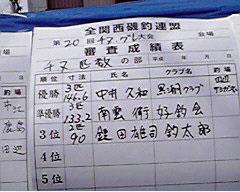 全関西磯釣連盟
第20回 チヌ、グレ 大会
審査成績表
チヌ 匹数 の部
平成 年 月 日
順位 寸法 氏名 クラブ名 釣場
優勝 3匹 146.6 中井久和
準優勝 3匹 133.2 南雲 衛 好釣会
3位 2匹 90 鎚田雄司 釣太郎
4位
5位